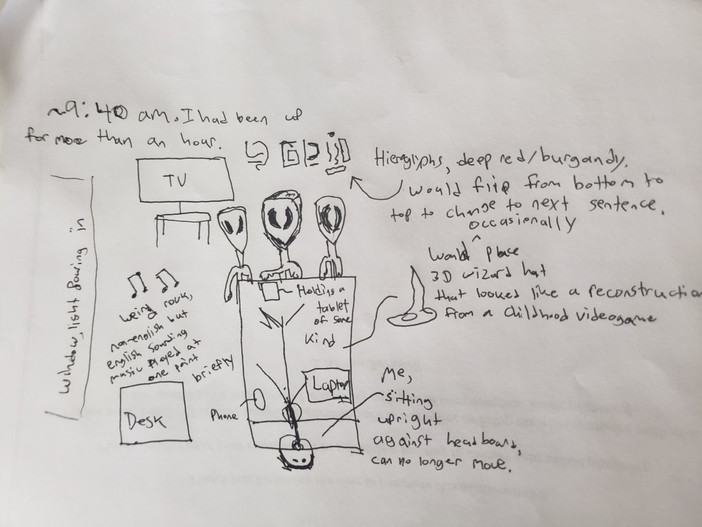 ~9:40 am. I had been up
for more than an hour.
Hieroglyphs, deep red/burgandy.
Would flip from bottom to
top to change to next sentence.
occasionally
Would ^ place
3D wizard hat
that looked like a reconstruction
from a childhood videogame
TV
Window, light flowing in
Holding a
tablet
of some
kind
weird rock,
non-english but
english sounding
music played at
one point
briefly
Laptop
Phone
Desk
Me,
sitting
upright
against headboard,
can no longer move.